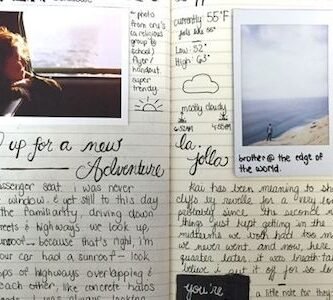 ← photo
from cru's
(a religious
group @
school)
flyer/
handout
super
trendy.
up for a new
Adventure
passenger seat i was never
window. & yet still to this day
the familiarity driving down
streets & highways we look up,
sunroof... because that's right, i'm
our car had a sunroof — look
ops of highways overlapping &
each other, like concrete halos
always looking
currently: 55°F
feels like 55°
Low: 52°
High: 63°
mostly cloudy
6:52AM
4:55PM
la
jolla
brother @ the edge of
the world.
Kai has been meaning to sh
cliffs by seville for a very lo
probably since the second
things just kept getting in the
and we both had less
we never went. and now, here
quarter later, it was breath ta
believe i put it off for so lo
you're
a little note for they